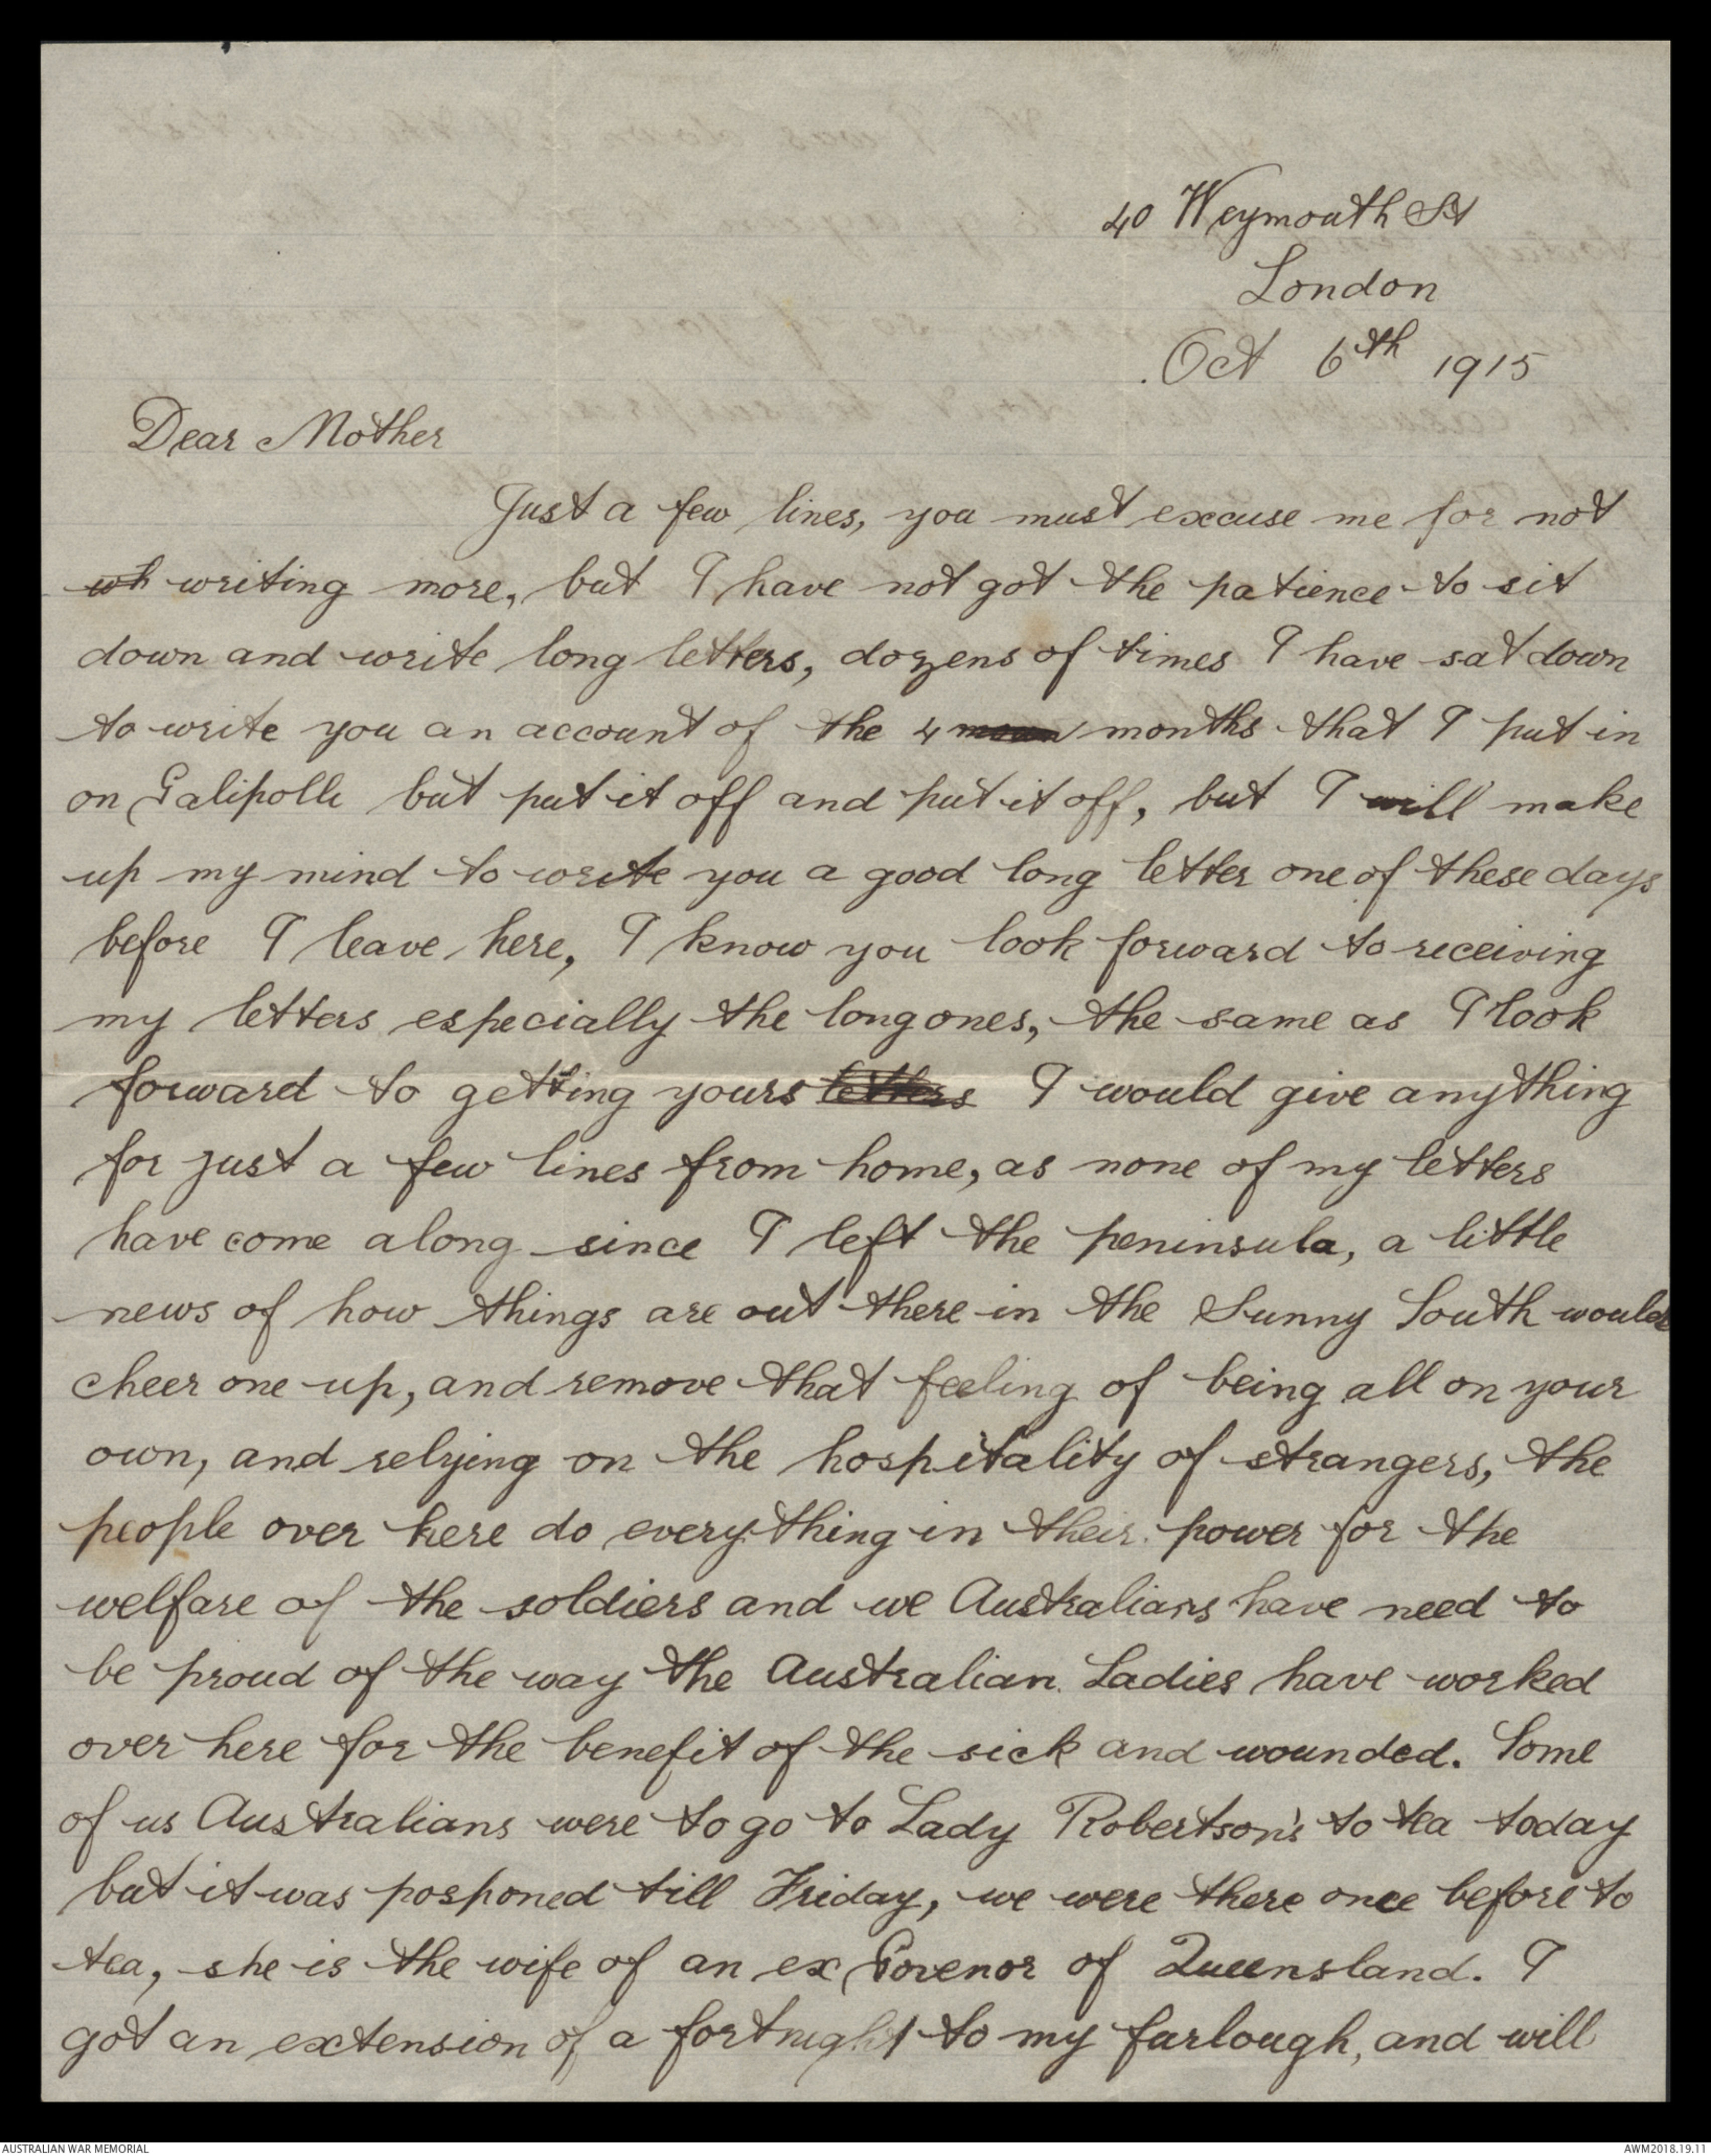 40 Weymouth St
London
Oct 6th 1915
Dear Mother
Just a few lines, you must excuse me for not
wh writing more, but I have not got the patience to sit
down and write long letters, dozens of times I have sat down
to write you an account of the 4 months that I put in
on Galipolli but put it off and put it off, but I will make
up my mind to write you a good long letter one of these days
before I leave here, I know you look forward to receiving
my letters especially the long ones, the same as I look
forward to getting yours letters I would give anything
for just a few lines from home, as none of my letters
have come along since I left the peninsula, a little
news of how things are out there in the Sunny South would
cheer one up, and remove that feeling of being all on your
own, and relying on the hospitality of strangers, the
people over here do everything in their power for the
welfare of the soldiers and we Australians have need to
be proud of the way the Australian Ladies have worked
over here for the benefit of the sick and wounded. Some
of us Australians were to go to Lady Robertson's to tea today
but it was posponed till Friday, we were there once before to
tea, she is the wife of an ex Govenor of Queensland. I
got an extension of a fortnight to my furlough, and will
AUSTRALIAN WAR MEMORIAL
AWM2018.19.11